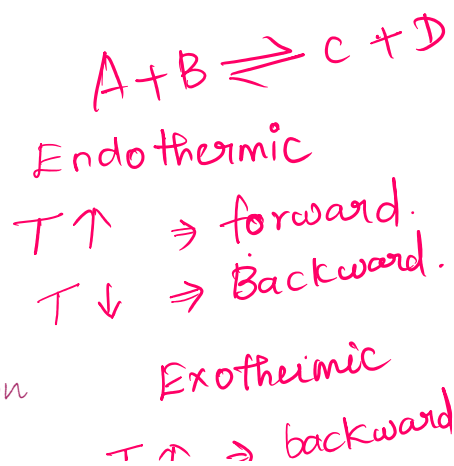 A + B ⇌ C + D
Endothermic
T ↑ ⇒ forward.
T ↓ ⇒ Backward.
Exothermic
T ↑ ⇒ backward